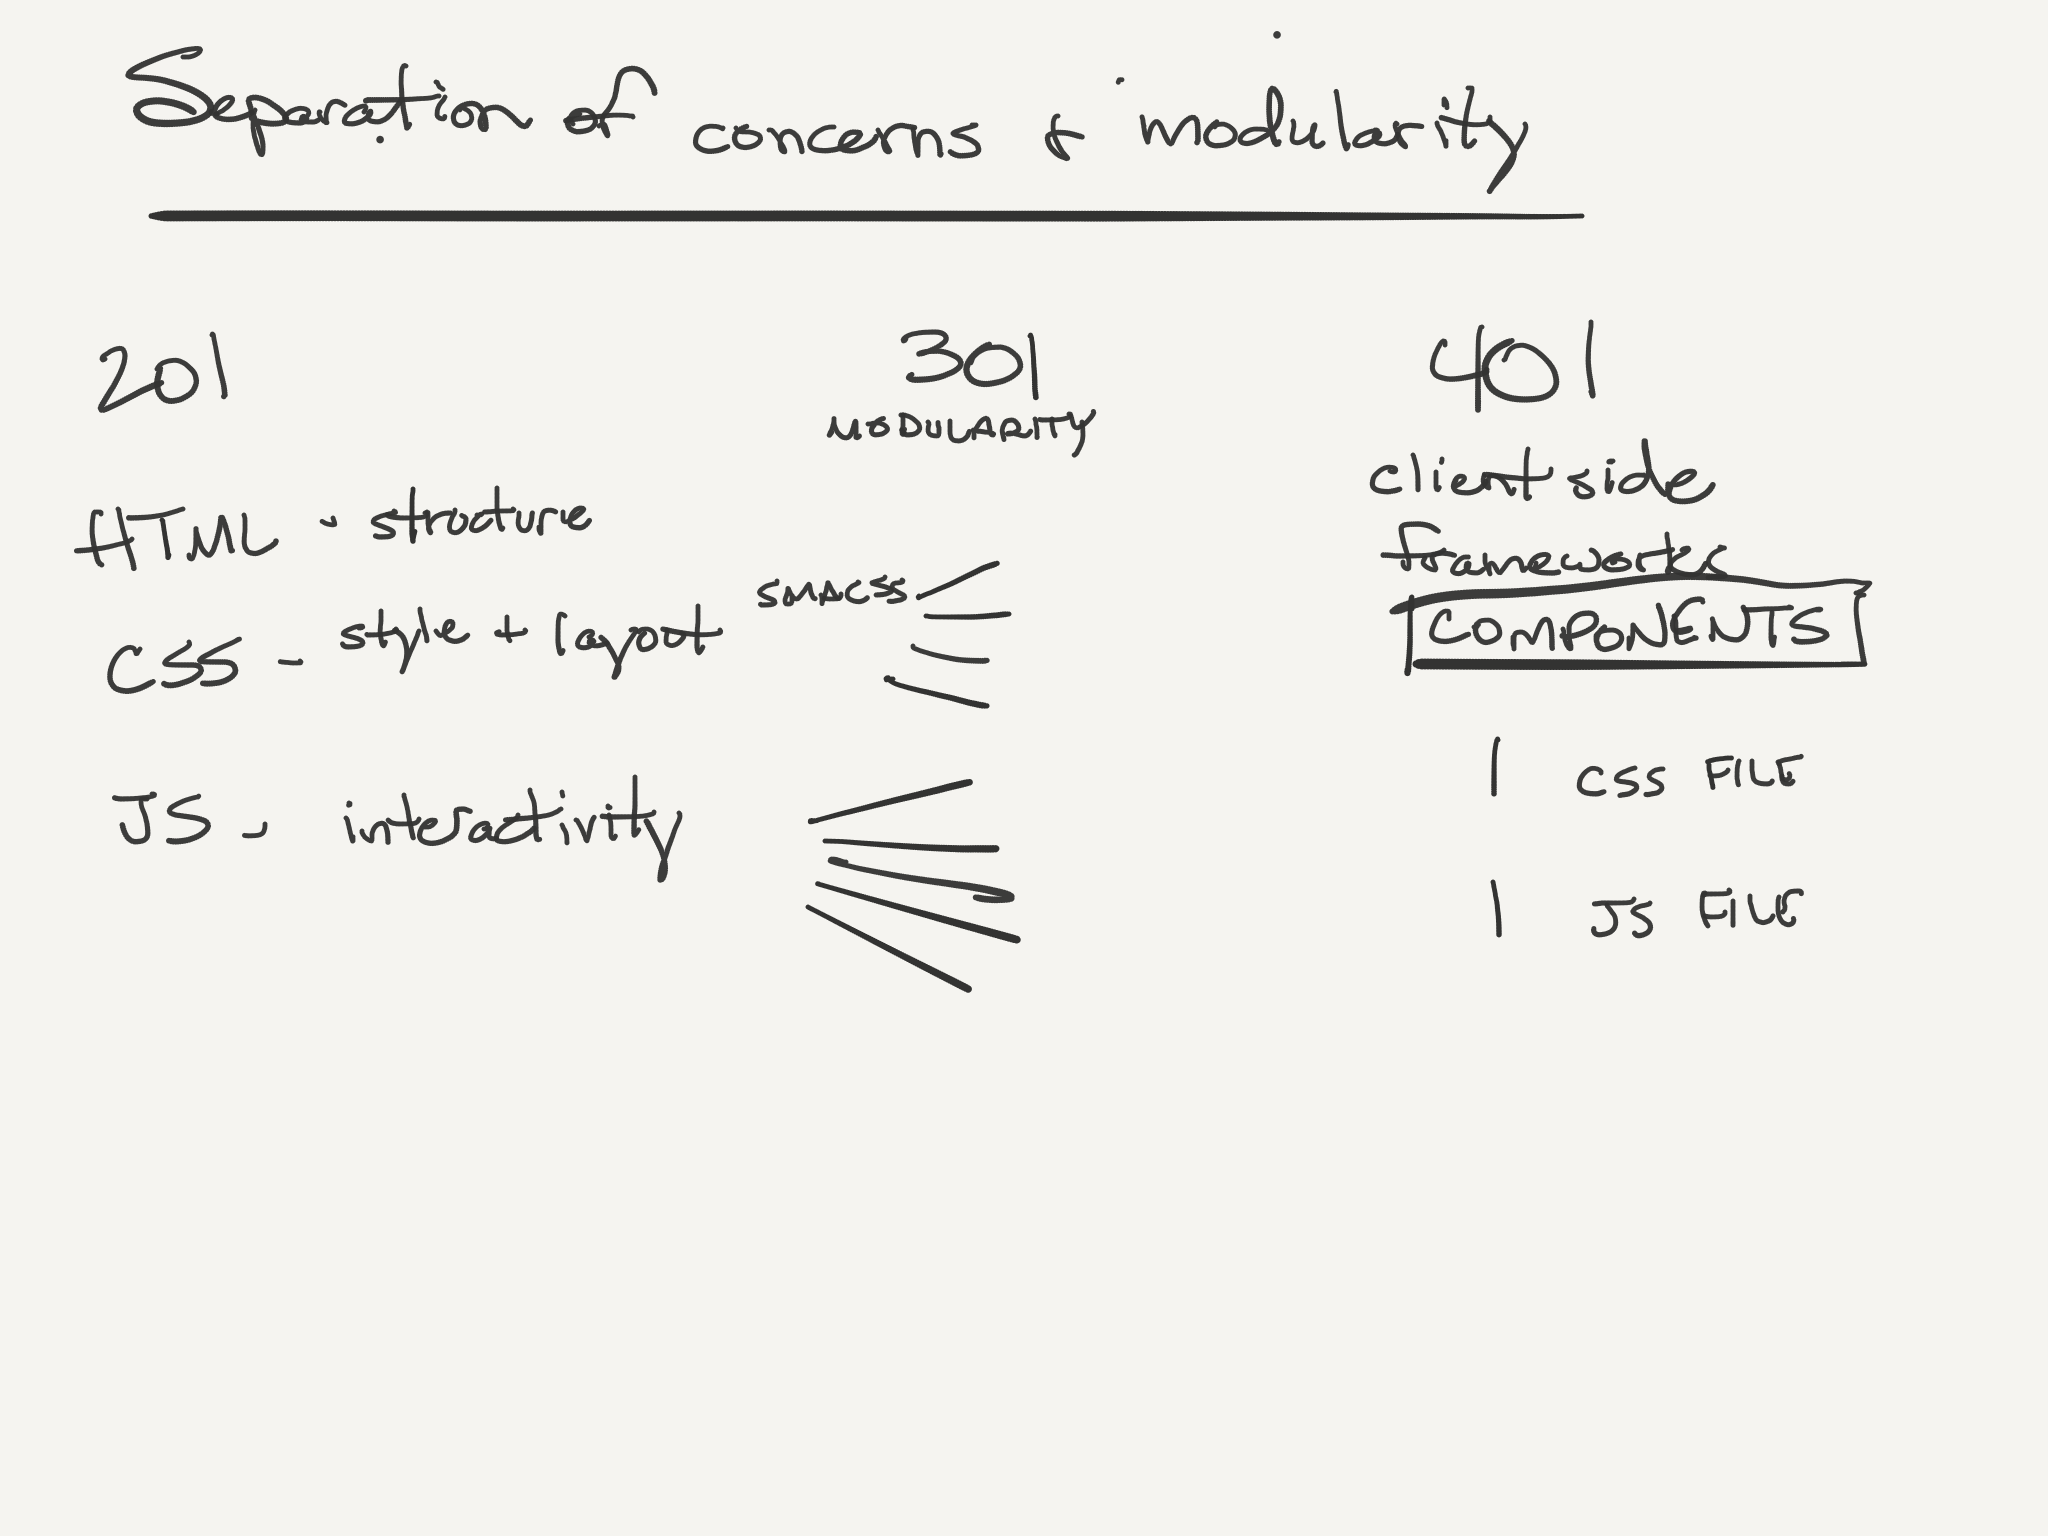 Separation of concerns + modularity
201
HTML - structure
CSS - style + layout
JS - interactivity
301
MODULARITY
SMACSS
401
client side
frameworks
COMPONENTS
1 CSS FILE
1 JS FILE